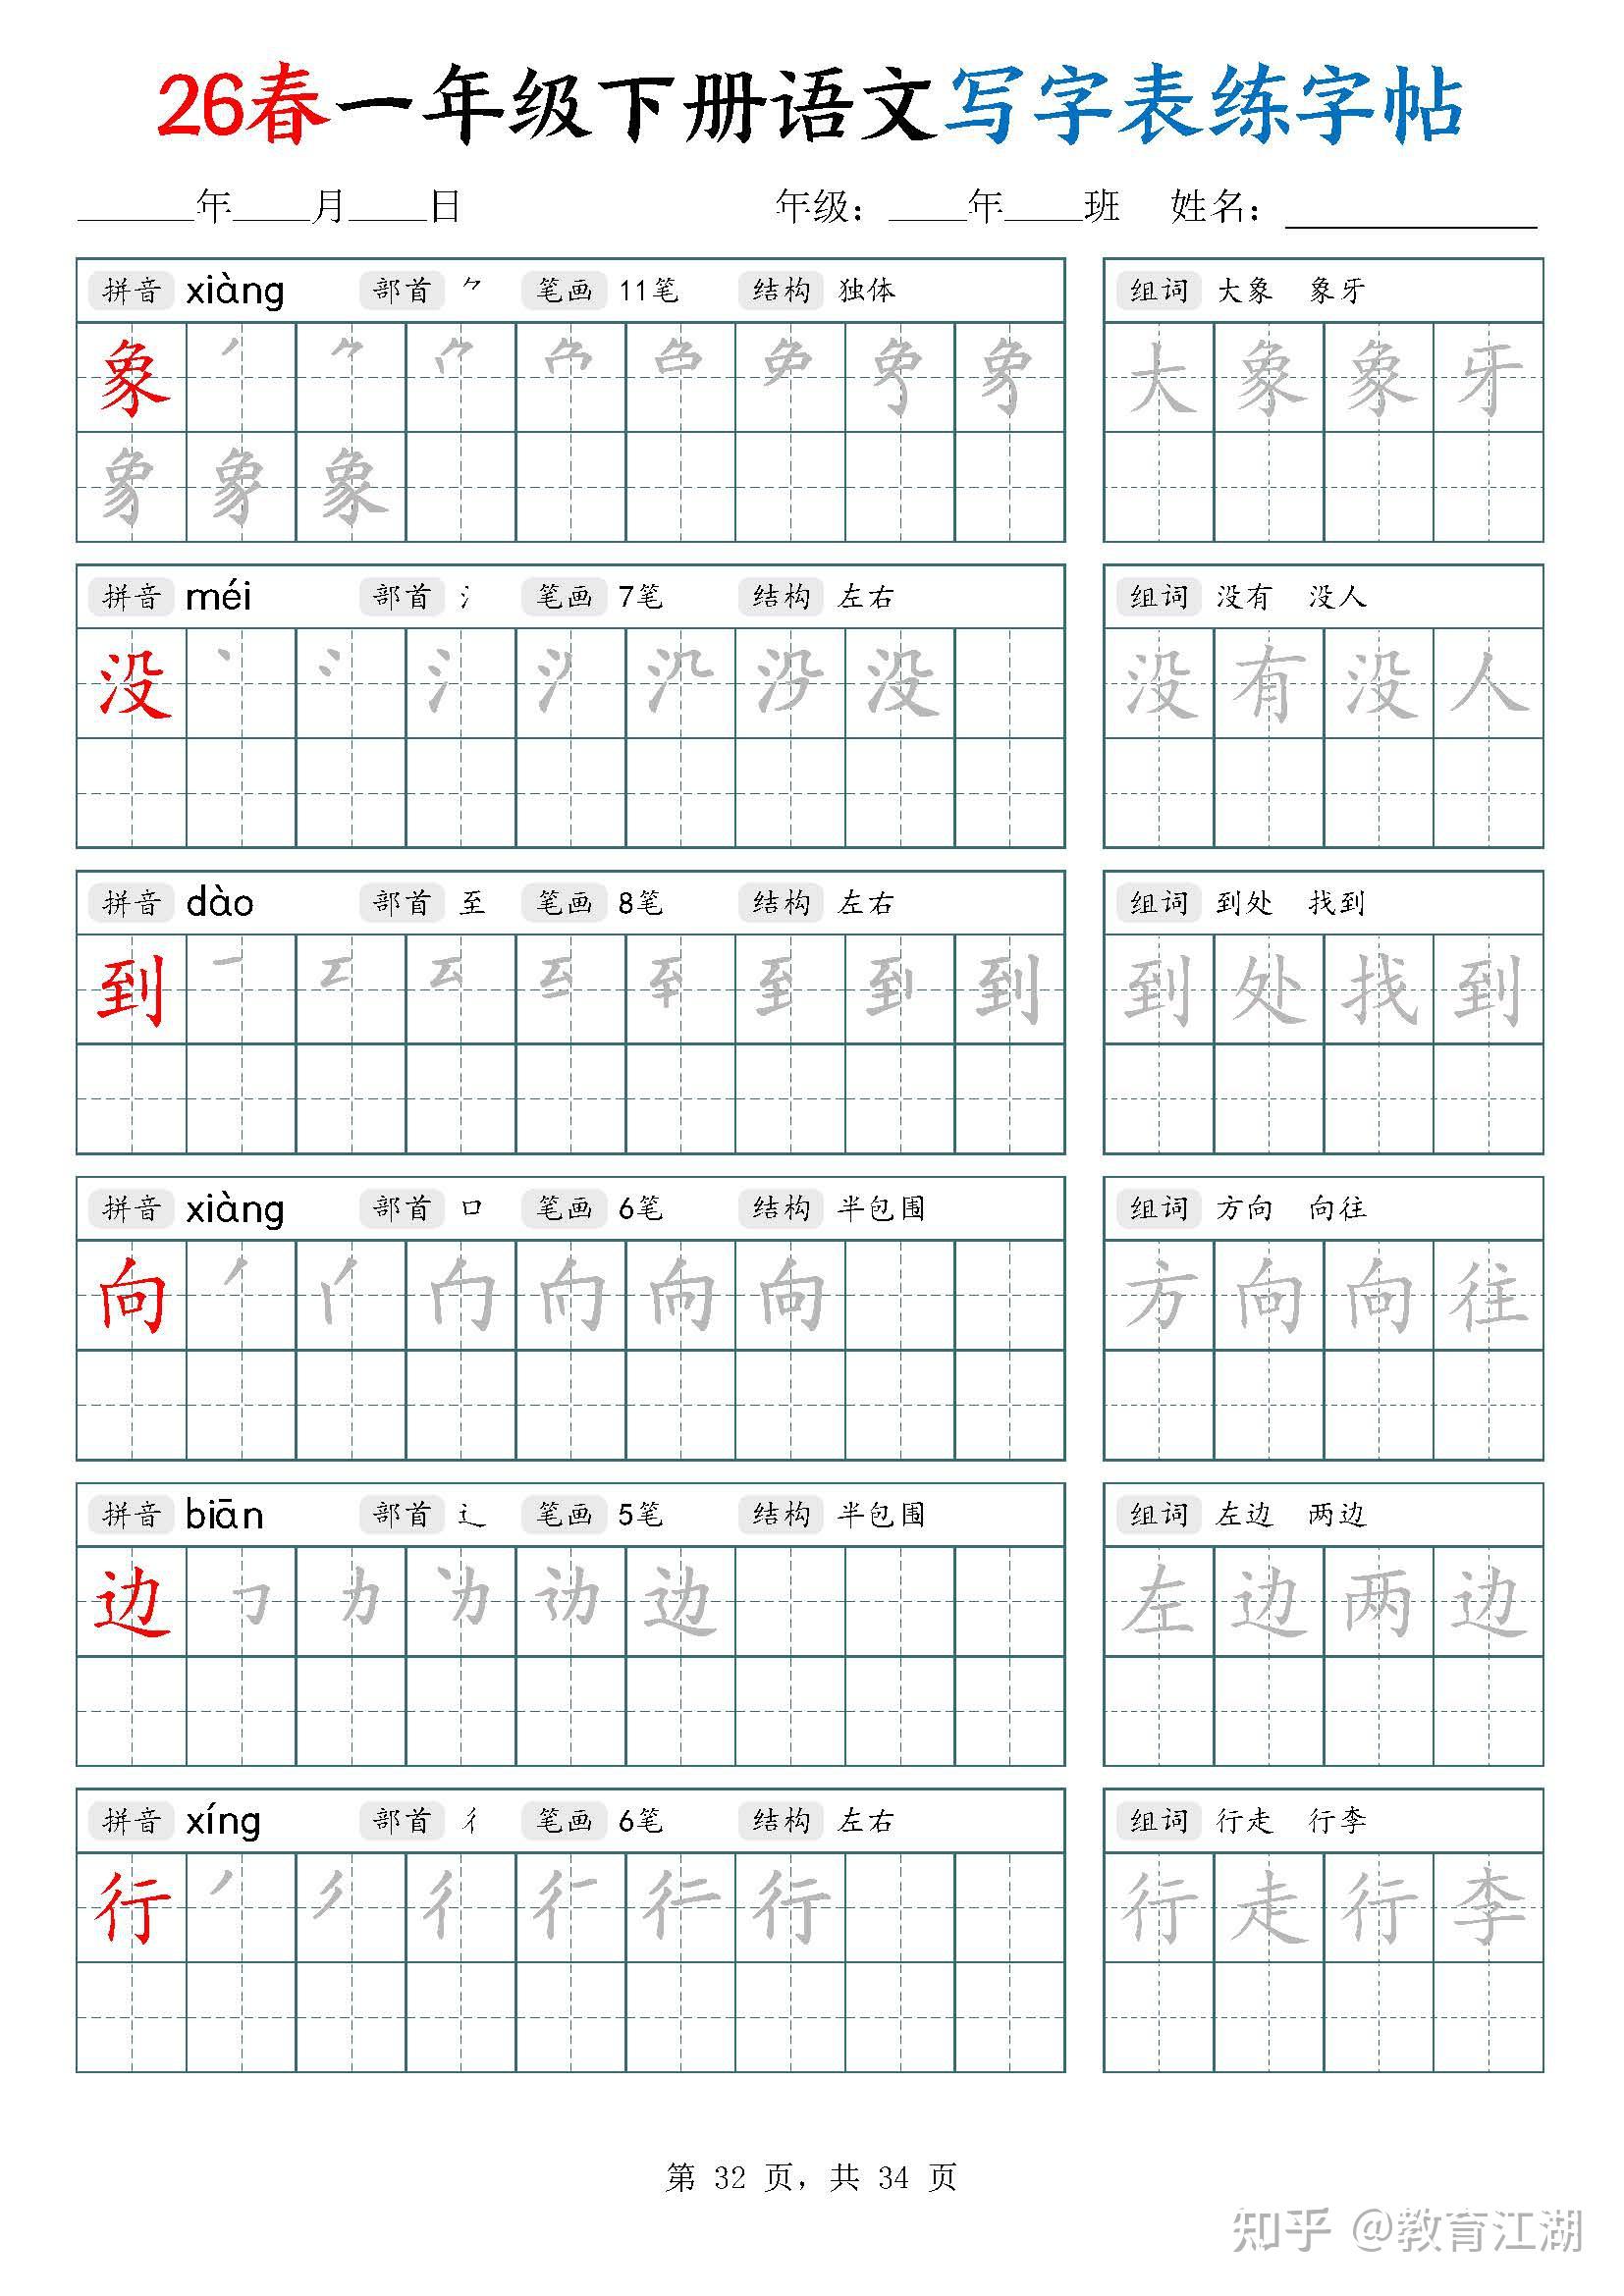 26春一年级下册语文写字表练字帖
____年____月____日 年级：____年____班 姓名：________
拼音 xiàng 部首 ⺈ 笔画 11笔 结构 独体 组词 大象 象牙
象 大 象 象 牙
象
拼音 méi 部首 氵 笔画 7笔 结构 左右 组词 没有 没人
没 没 没 有 没 人
拼音 dào 部首 至 笔画 8笔 结构 左右 组词 到处 找到
到 到 到 处 找 到
拼音 xiàng 部首 口 笔画 6笔 结构 半包围 组词 方向 向往
向 向 方 向 向 往
拼音 biān 部首 辶 笔画 5笔 结构 半包围 组词 左边 两边
边 边 左 边 两 边
拼音 xíng 部首 彳 笔画 6笔 结构 左右 组词 行走 行李
行 行 行 走 行 李
第 32 页，共 34 页
知乎 @教育江湖